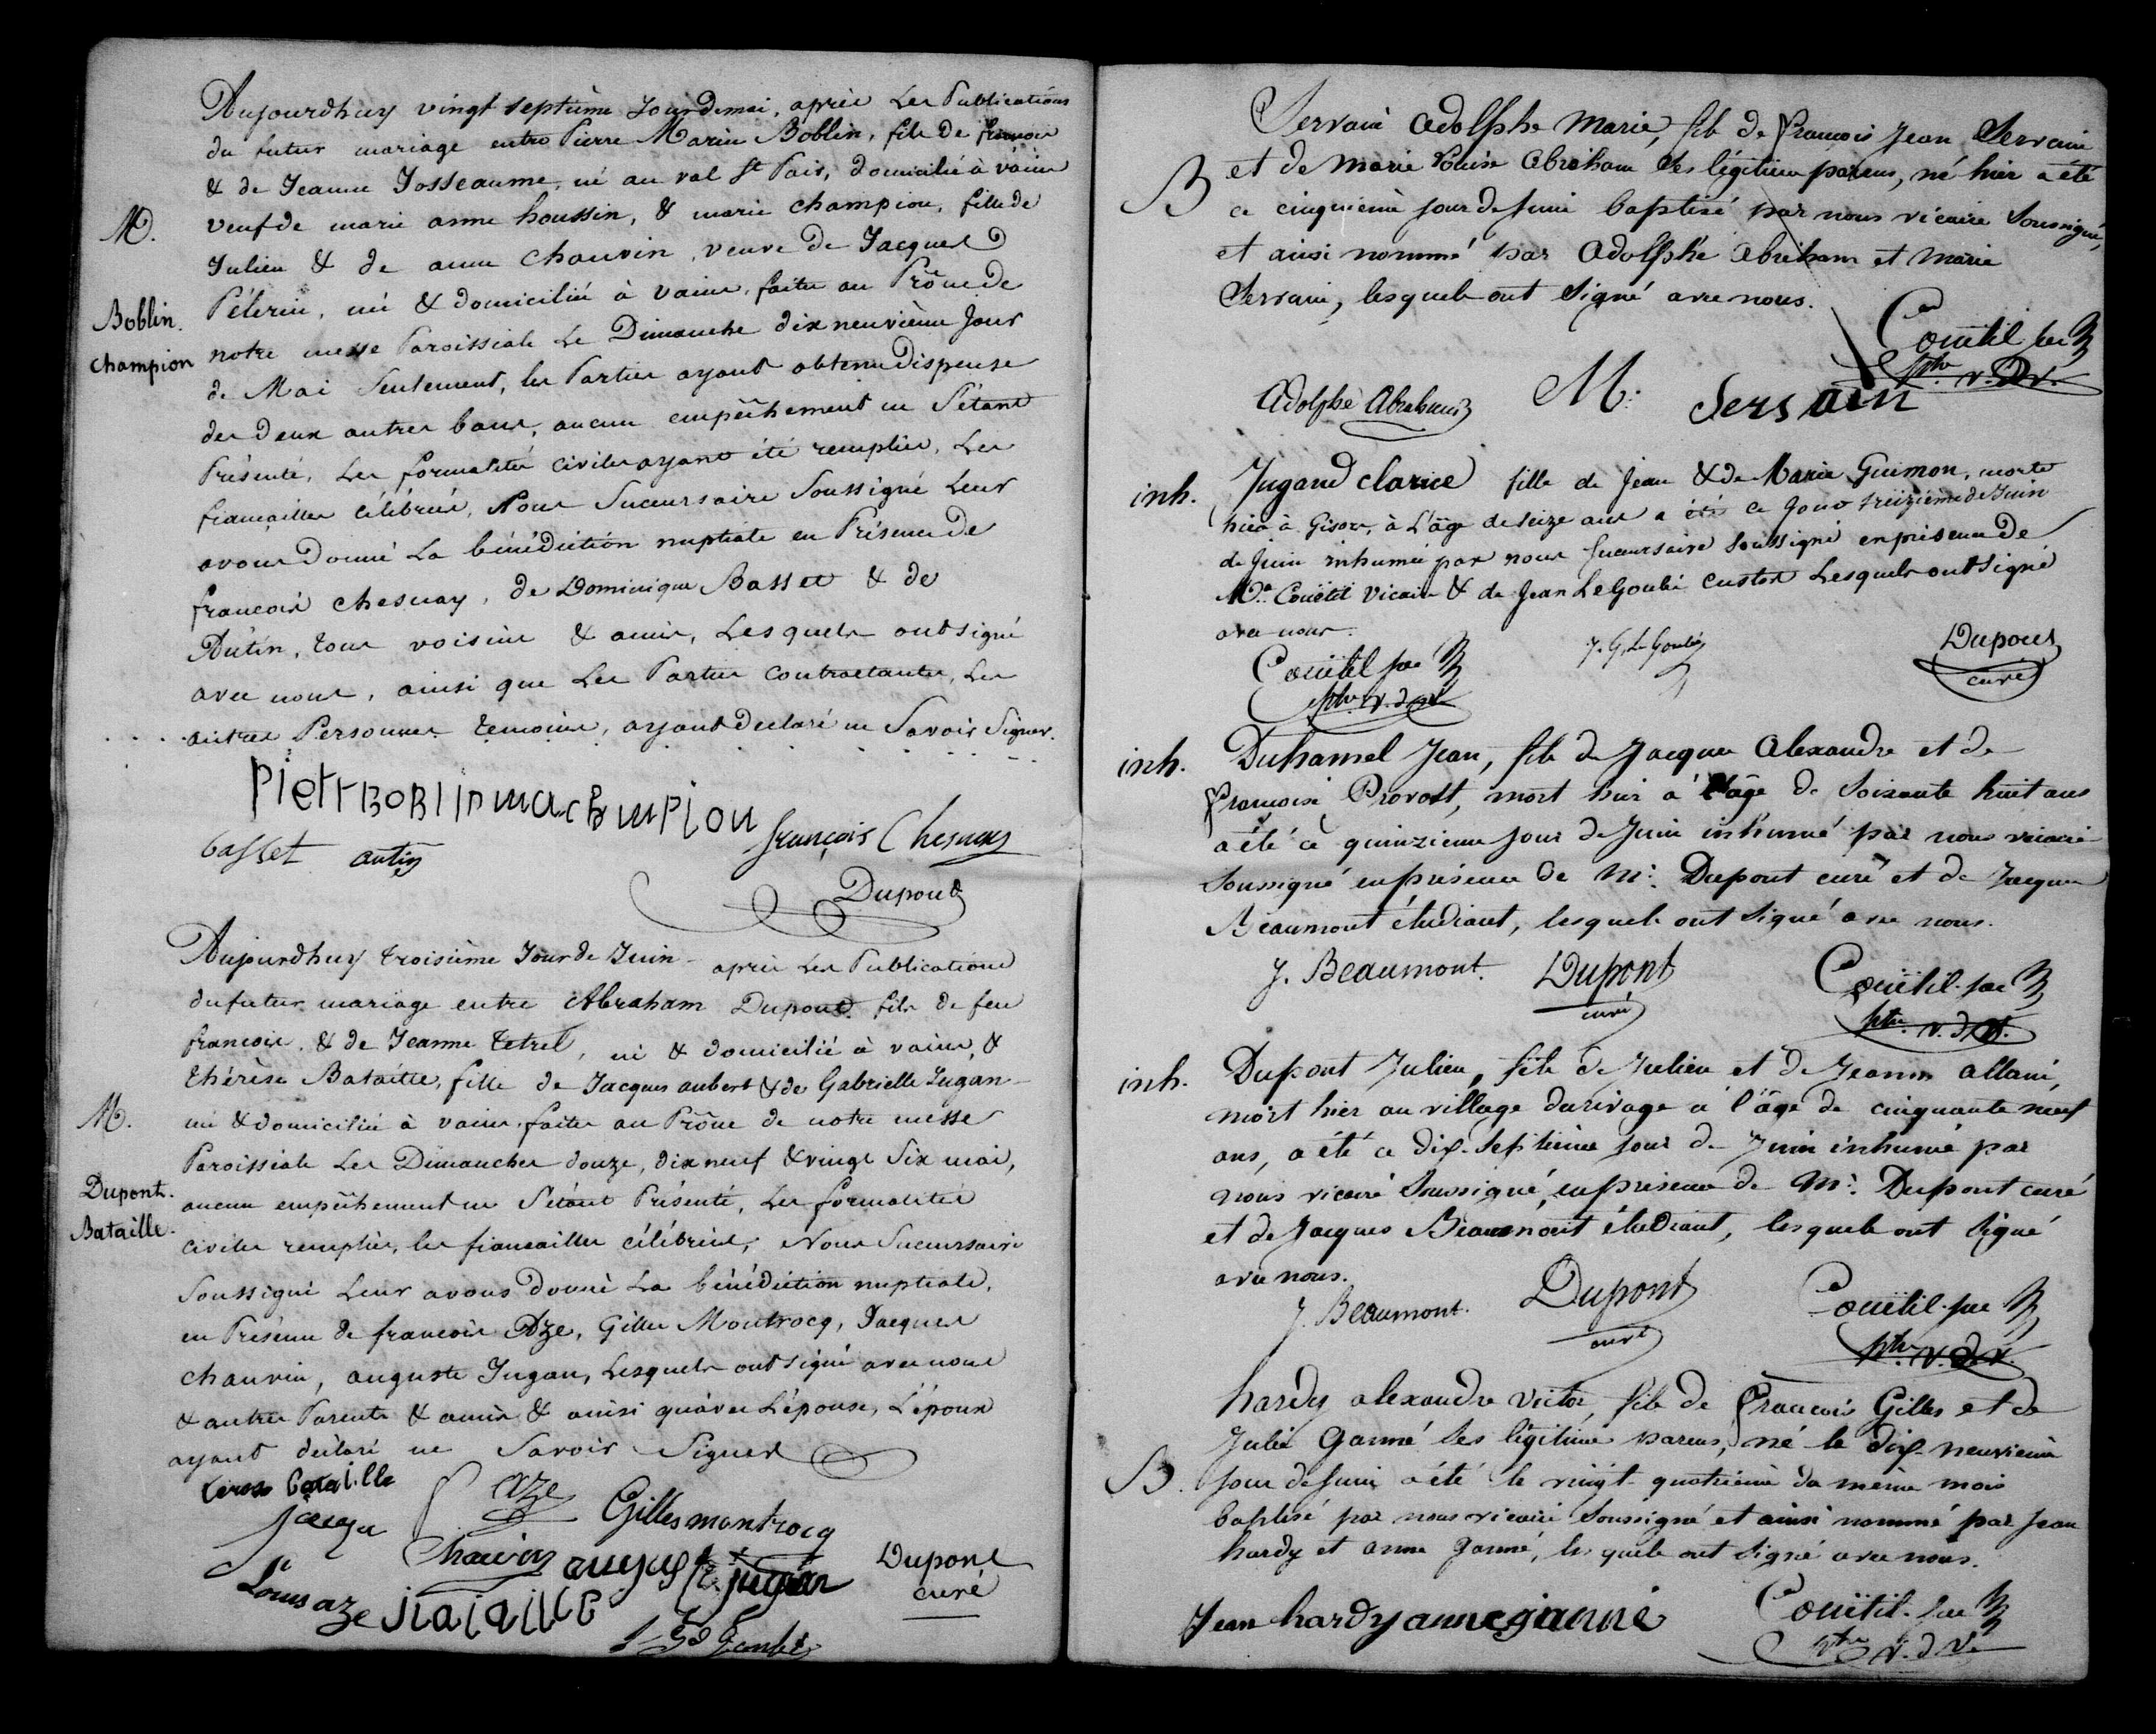 Aujourdhuy vingt septième Jour de mai, après Les Publications
du futur mariage entre Pierre Marin Boblin, fils de françois
& de Jeanne Josseaume, né au val St Pair, domicilié à vains
M. veuf de marie anne houssin, & marie champion, fille de
Julien & de anne Chauvin, veuve de Jacques
Boblin. Pélerin, née & domiciliée à Vains, faites au Prône de
champion notre messe Paroissiale Le Dimanche dix neuvième Jour
de Mai Seulement, les Parties ayant obtenu Dispense
des deux autres bans, aucun empêchement ne S'étant
Présenté, Les formalités Civiles ayant été remplies, Les
fiançailles célébrées, Nous Succursaire Soussigné Leur
avons Donné La bénédiction nuptiale en Présence de
françois chesnay, de Dominique Basset & de
Autin, tous voisins & amis, Lesquels ont signé
avec nous, ainsi que Les Parties Contractantes, Les
autres Personnes temoins, ayant declaré ne Savoir Signer.
pierr BOBlin ma champion
basset autin françois Chesnay
Dupont
Aujourdhuy troisième Jour de Juin après Les Publications
du futur mariage entre Abraham Dupont fils de feu
françois & de Jeanne Tetrel, né & domicilié à vains, &
thérèse Bataille, fille de Jacques aubert & de Gabrielle Jugan
M. née & domiciliée à vains, faites au Prône de notre messe
Paroissiale Les Dimanches douze, dix neuf & vingt Six mai,
Dupont. aucun empêchement ne S'étant Présenté, Les formalités
Bataille. civiles remplies, les fiançailles célébrées, Nous Succursaire
Soussigné Leur avons donné La bénédiction nuptiale,
en Présence de françois Aze, Gilles Montrocq, Jacques
Chauvin, auguste Jugan, Lesquels ont signé avec nous
& autres Parents & amis & ainsi qu'avec L'épouse, L'époux
ayant déclaré ne Savoir Signer
Bataille
jacque aze Gilles montrocq
Chauvin auguste jugan Dupont
curé
Louis aze
Servain Adolphe Marie, fils de François Jean Servain
B et de Marie Louise Abraham Ses légitimes parens, né hier a été
ce cinquième jour de juin baptisé par nous vicaire Soussigné,
et ainsi nommé par Adolphe Abraham et Marie
Servain, lesquels ont Signé avec nous.
Couëtil
ptre v. d V.
Adolphe Abraham M. Servain
inh. Jugand clarice fille de Jean & de Marie Guimon, morte
hier à Gisors, à L'âge de seize ans a été ce Jour treizième de Juin
de Juin inhumée par nous Succursaire Soussigné en présence de
Mr. Couëtil Vicaire & de Jean LeGoubé Custos Lesquels ont signé
avec nous.
Couëtil J. G. Le Goubé Dupont
ptre v. d V. curé
inh. Duhamel Jean, fils de Jacques Alexandre et de
Françoise Provost, mort hier à l'âge de Soixante huit ans
a été ce quinzième jour de Juin inhumé par nous vicaire
Soussigné en présence de Mr. Dupont curé et de Jacques
Beaumont étudiant, lesquels ont Signé avec nous.
J. Beaumont. Dupont Couëtil
curé ptre v. d V.
inh. Dupont Julien, fils de Julien et de Jeanne Allain,
mort hier au village du rivage à l'âge de cinquante neuf
ans, a été ce dix-septième jour de Juin inhumé par
nous vicaire Soussigné, en présence de Mr. Dupont curé
et de Jacques Beaumont étudiant, lesquels ont Signé
avec nous.
J. Beaumont. Dupont Couëtil
curé ptre v. d V.
hardy alexandre Victor, fils de François Gilles et de
Julie Ganné Ses légitimes parens, né le dix-neuvième
B. jour de Juin a été le vingt-quatrième du même mois
baptisé par nous vicaire Soussigné et ainsi nommé par Jean
hardy et anne Ganné, lesquels ont Signé avec nous.
Jean hardy anne ganné Couëtil
ptre v. d V.